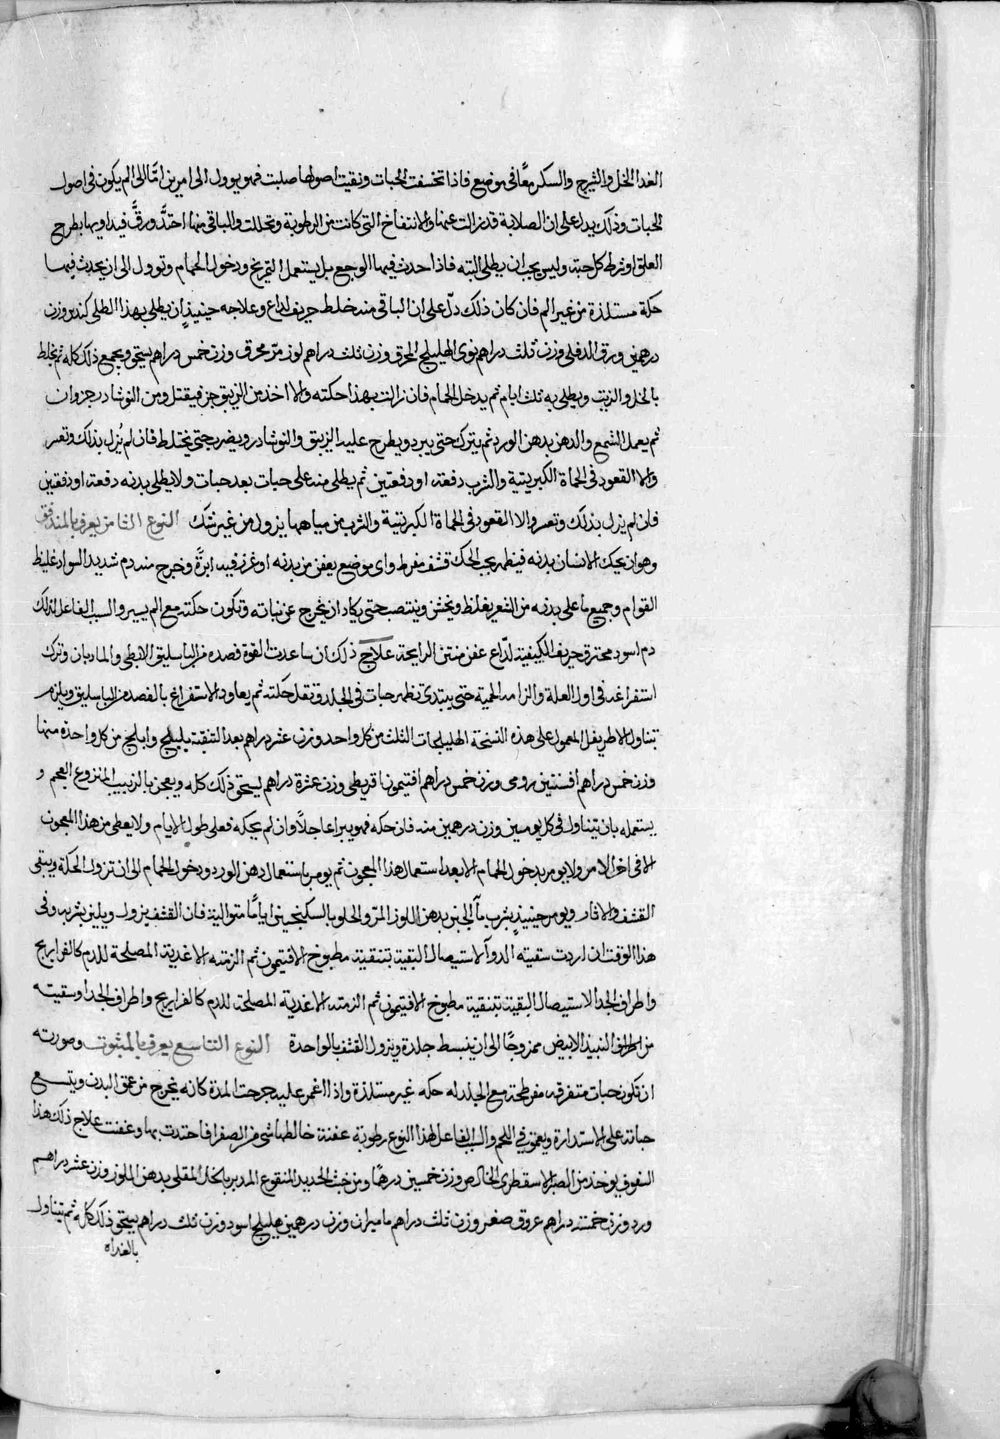 الغدا الخل والشيرج والسكر معًا فى موضع فاذا تخسفت الحبات ونقيت اصولها صلبت فهو يوول الى امرين امّا الى الم يكون فى اصول
الحبات وذلك يدل على ان الصلابة قد زالت عنها والانتفاخ التى كانت من الرطوبة وتحللت والباقى منها احتدّ ورقّ فيداويها بطرح
العلق او شرط كل حبة وليس يجب ان يطلى البته فاذا حدث فيها الوجع بل يستعمل التمريخ ودخول الحمام وتوول الى ان يحدث فيها
حكة مستلذة من غير الم فان كان ذلك دلّ على ان الباقى منه خلط حريف لذاع وعلاجه حينيذٍ ان يطلى بهذا الطلى كندر وزن
درهمين ورق الدفلى وزن ثلث دراهم نوى الهليلج المحرق وزن ثلث دراهم لوز مرّ محرق وزن خمس دراهم يسحق ويجمع ذلك كله ثم يخلط
بالخل والزيت ويطلى به ثلث ايام ثم يدخل الحمام فان زالت بهذا حكته والا اخذ من الزيبق جز فيقتل ومن النوشادر جزوان
ثم يعمل الشمع والدهن بدهن الورد ثم يترك حتى يبرد ويطرح عليه الزيبق والنوشادر ويضرب حتى يختلط فان لم يُزل بذلك وتعسر
والا القعود فى الحماة الكبريتية والشرب دفعة او دفعتين ثم يطلى منه على حبات بعد حبات ولا يطلى بدنه دفعة او دفعتين
فان لم يزل بذلك وتعسر والا القعود فى الحماة الكبريتية والشرب من مياهها يزول من غير شك النوع الثامن يعرف بالمندفق
وهو ان يحك الانسان بدنه فيظهر بحب الحك قشف مفرط واى موضع يعفن من بدنه او غرز فيه ابرةً وخرج منه دم شديد السواد غليظ
القوام وجميع ما على بدنه من الشعر يغلظ ويخشن وينتصب حتى يكاد ان يخرج عن نباته وتكون حكته مع الم يسير والسبب الفاعل لذلك
دم اسود محترق حريف الكيفية لذّاع عفن منتن الرايحة علاج ذلك ان ساعدت القوة فصده من الباسليق الابطى والمادبان وترك
استفراغه فى اول العلة والزامه الحمية حتى يبتدى تظهر حبات فى الجلد وتقل حكته ثم يعاود الاستفراغ بالفصد من الباسليق ويلزم
تناول الاطريفل المعمول على هذه النسخة الهليلجات الثلث من كل واحد وزن عشر دراهم بعد التنقية بليلج وابلج من كل واحدة منها
وزن خمس دراهم افسنتين رومى وزن خمس دراهم افتيمون اقريطى وزن عشرة دراهم يسحق ذلك كله ويعجن بالزبيب المنزوع العجم و
يستعمله بان يتناول فى كل يومين وزن درهمين منه فان حكه فهو يبرا عاجلاً وان لم يحكه فعلى طول الايام ولا يعطى من هذا المعجون
الا فى اخر الامر ولا يومر بدخول الحمام الا بعد استعمال هذا المعجون ثم يومر باستعمال دهن الورد ودخول الحمام الى ان تزول الحكة ويبقى
القشف والاثار ويومر حينيذٍ بشرب مآ الجبن بدهن اللوز المرّ والحلو بالسكنجبين ايامًا متوالية فان القشف يزول ويلين بشربه وفى
هذا الوقت ان اردت سقيته الدوآ لاستيصال البقية بتنقية مطبوخ الافتيمون ثم الزمته الاغدية المصلحة للدم كالفراريج
واطراف الجدا لاستيصال البقية بتنقية مطبوخ الافتيمون ثم الزمته الاغدية المصلحة للدم كالفراريج واطراف الجدا وسقيته
من النبيذ الابيض ممزوجًا الى ان ينبسط جلدة ويزول القشف بالواحدة النوع التاسع يعرف بالمبثوت وصورته
ان تكون حبات متفرقه مفرطحة مع الجلد له حكه غير مستلذة واذا انغمر عليه خرجت المدة كانه يخرج من عمق البدن ويتسع
حباته على الاستدارة ويعمق فى اللحم والسبب الفاعل لهذا النوع رطوبة عفنة خالطها شى من الصفرا فاحتدت بها وعفنت علاج ذلك هذا
السفوف يوخذ من الصبر الاسقطرى الخالص وزن خمسين درهمًا ومن خبث الحديد المنقوع المدبر بالخل المقلى بدهن اللوز وزن عشر دراهم
ورد وزن خمسة دراهم عروق صفر وزن ثلث دراهم ماميران وزن درهمين هليلج اسود وزن ثلث دراهم يسحق ذلك كله ثم يتناول
بالغداه